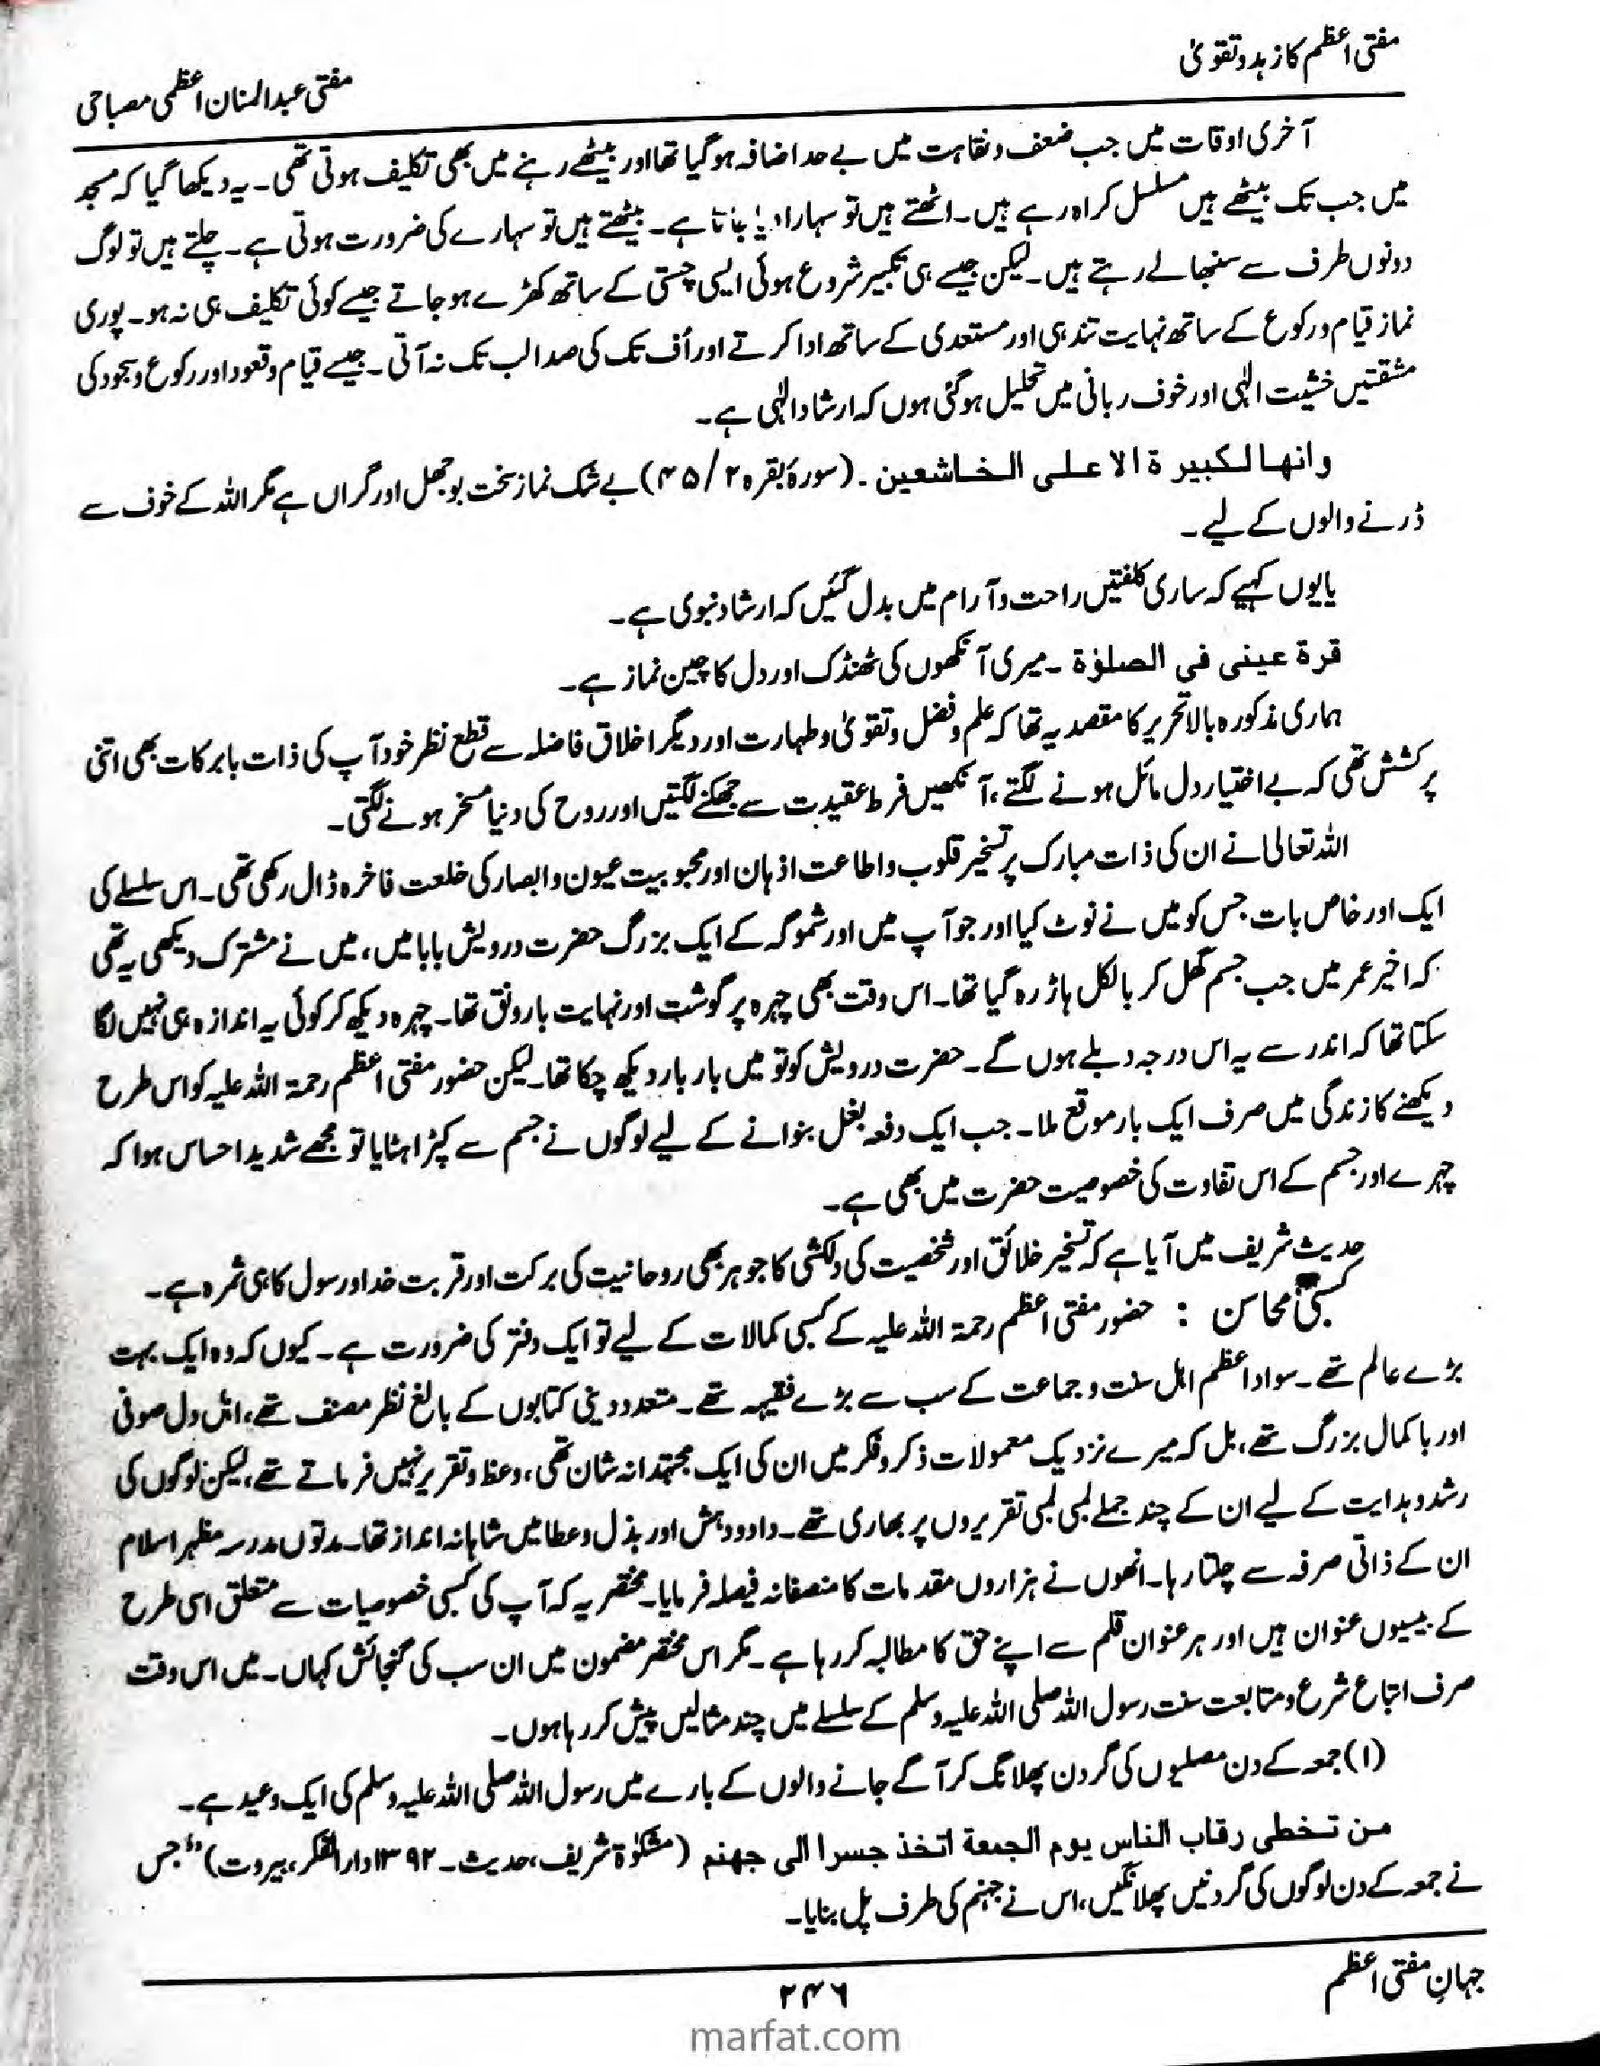 مفتی اعظم کا زہد و تقویٰ
مفتی عبدالمنان اعظمی مصباحی
آخری اوقات میں جب ضعف و نقاہت میں بے حد اضافہ ہوگیا تھا اور بیٹھے رہنے میں بھی تکلیف ہوتی تھی۔ یہ دیکھا گیا کہ مسجد
میں جب تک بیٹھے ہیں مسلسل کراہ رہے ہیں۔ اٹھتے ہیں تو سہارا دیا جاتا ہے۔ بیٹھتے ہیں تو سہارے کی ضرورت ہوتی ہے۔ چلتے ہیں تو لوگ
دونوں طرف سے سنبھالے رہتے ہیں۔ لیکن جیسے ہی تکبیر شروع ہوئی ایسی چستی کے ساتھ کھڑے ہو جاتے جیسے کوئی تکلیف ہی نہ ہو۔ پوری
نماز قیام و رکوع کے ساتھ نہایت تندہی اور مستعدی کے ساتھ ادا کرتے اور اُف تک کی صدا لب تک نہ آتی۔ جیسے قیام و قعود اور رکوع و سجود کی
مشقتیں خشیت الٰہی اور خوف ربانی میں تحلیل ہوگئی ہوں کہ ارشاد الٰہی ہے۔
وانھا لکبیرۃ الا علی الخاشعین۔ (سورۂ بقرہ ۲/۴۵) بے شک نماز سخت بوجھل اور گراں ہے مگر اللہ کے خوف سے
ڈرنے والوں کے لیے۔
یا یوں کہیے کہ ساری کلفتیں راحت و آرام میں بدل گئیں کہ ارشاد نبوی ہے۔
قرۃ عینی فی الصلوٰۃ ۔ میری آنکھوں کی ٹھنڈک اور دل کا چین نماز ہے۔
ہماری مذکورہ بالا تحریر کا مقصد یہ تھا کہ علم و فضل و تقویٰ و طہارت اور دیگر اخلاق فاضلہ سے قطع نظر خود آپ کی ذات بابرکات بھی اتنی
پرکشش تھی کہ بے اختیار دل مائل ہونے لگتے، آنکھیں فرط عقیدت سے جھکنے لگتیں اور روح کی دنیا مسخر ہونے لگتی۔
اللہ تعالیٰ نے ان کی ذات مبارک پر تسخیر قلوب و اطاعت اذہان اور محبوبیت عیون و ابصار کی خلعت فاخرہ ڈال رکھی تھی۔ اس سلسلے کی
ایک اور خاص بات جس کو میں نے نوٹ کیا اور جو آپ میں اور شموگہ کے ایک بزرگ حضرت درویش بابا میں، میں نے مشترک دیکھی یہ تھی
کہ اخیر عمر میں جب جسم گھل کر بالکل ہاڑ رہ گیا تھا۔ اس وقت بھی چہرہ پر گوشت اور نہایت بارونق تھا۔ چہرہ دیکھ کر کوئی یہ اندازہ ہی نہیں لگا
سکتا تھا کہ اندر سے یہ اس درجہ دبلے ہوں گے۔ حضرت درویش کو تو میں بار بار دیکھ چکا تھا۔ لیکن حضور مفتی اعظم رحمۃ اللہ علیہ کو اس طرح
دیکھنے کا زندگی میں صرف ایک بار موقع ملا۔ جب ایک دفعہ بغل بنوانے کے لیے لوگوں نے جسم سے کپڑا ہٹایا تو مجھے شدید احساس ہوا کہ
چہرے اور جسم کے اس تفاوت کی خصوصیت حضرت میں بھی ہے۔
حدیث شریف میں آیا ہے کہ تسخیر خلائق اور شخصیت کی دلکشی کا جوہر بھی روحانیت کی برکت اور قربت خدا و رسول کا ہی ثمرہ ہے۔
کسبی محاسن : حضور مفتی اعظم رحمۃ اللہ علیہ کے کسبی کمالات کے لیے تو ایک دفتر کی ضرورت ہے۔ کیوں کہ وہ ایک بہت
بڑے عالم تھے۔ سواد اعظم اہل سنت و جماعت کے سب سے بڑے فقیہہ تھے۔ متعدد دینی کتابوں کے بالغ نظر مصنف تھے، اہل دل صوفی
اور باکمال بزرگ تھے، بل کہ میرے نزدیک معمولات ذکر و فکر میں ان کی ایک مجتہدانہ شان تھی، وعظ و تقریر نہیں فرماتے تھے، لیکن لوگوں کی
رشد و ہدایت کے لیے ان کے چند جملے لمبی لمبی تقریروں پر بھاری تھے۔ داد و دہش اور بذل و عطا میں شاہانہ انداز تھا۔ مدتوں مدرسہ مظہر اسلام
ان کے ذاتی صرفہ سے چلتا رہا۔ انھوں نے ہزاروں مقدمات کا منصفانہ فیصلہ فرمایا۔ مختصر یہ کہ آپ کی کسبی خصوصیات سے متعلق اسی طرح
کے بیسیوں عنوان ہیں اور ہر عنوان قلم سے اپنے حق کا مطالبہ کر رہا ہے۔ مگر اس مختصر مضمون میں ان سب کی گنجائش کہاں۔ میں اس وقت
صرف اتباع شرع و متابعت سنت رسول اللہ صلی اللہ علیہ وسلم کے سلسلے میں چند مثالیں پیش کر رہا ہوں۔
(۱) جمعہ کے دن مصلیوں کی گردن پھلانگ کر آگے جانے والوں کے بارے میں رسول اللہ صلی اللہ علیہ وسلم کی ایک وعید ہے۔
من تخطی رقاب الناس یوم الجمعۃ اتخذ جسرا الی جھنم (مشکوٰۃ شریف، حدیث۔ ۱۳۹۲ دار الفکر، بیروت) ”جس
نے جمعہ کے دن لوگوں کی گردنیں پھلانگیں، اس نے جہنم کی طرف پل بنایا۔
جہانِ مفتی اعظم
۲۴۶
marfat.com